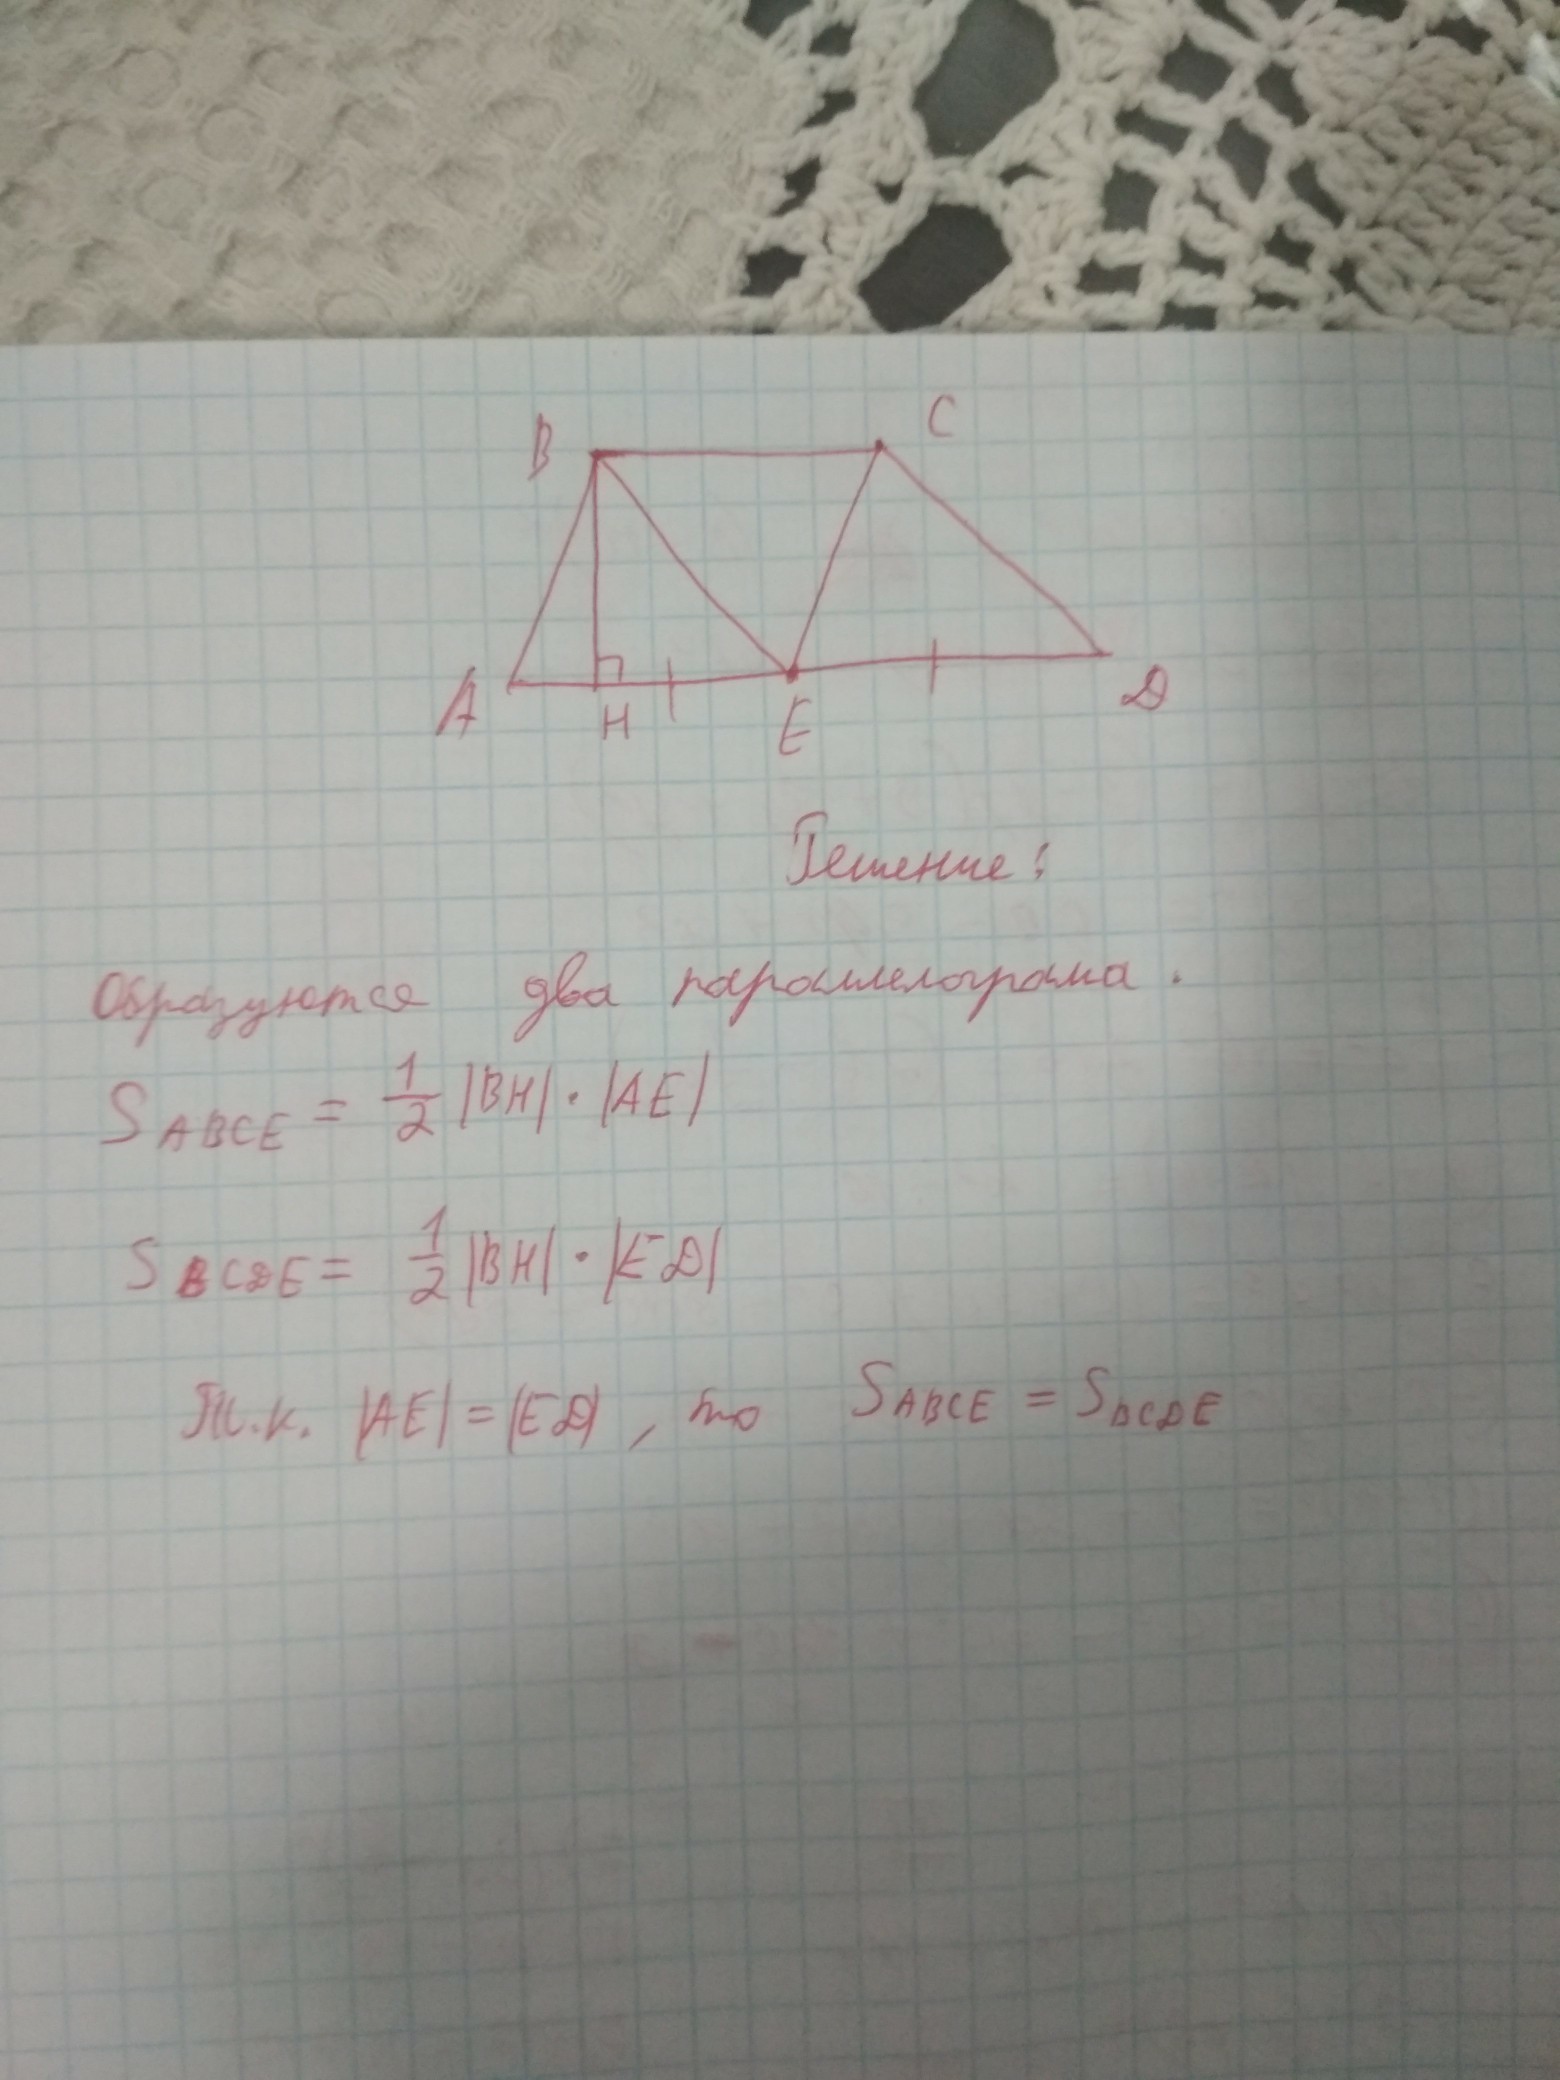 B C
A H E D
Решение:
Образуются два параллелограма.
S ABCE = 1/2 |BH| · |AE|
S BCDE = 1/2 |BH| · |ED|
Т.к. |AE| = |ED|, то S ABCE = S BCDE